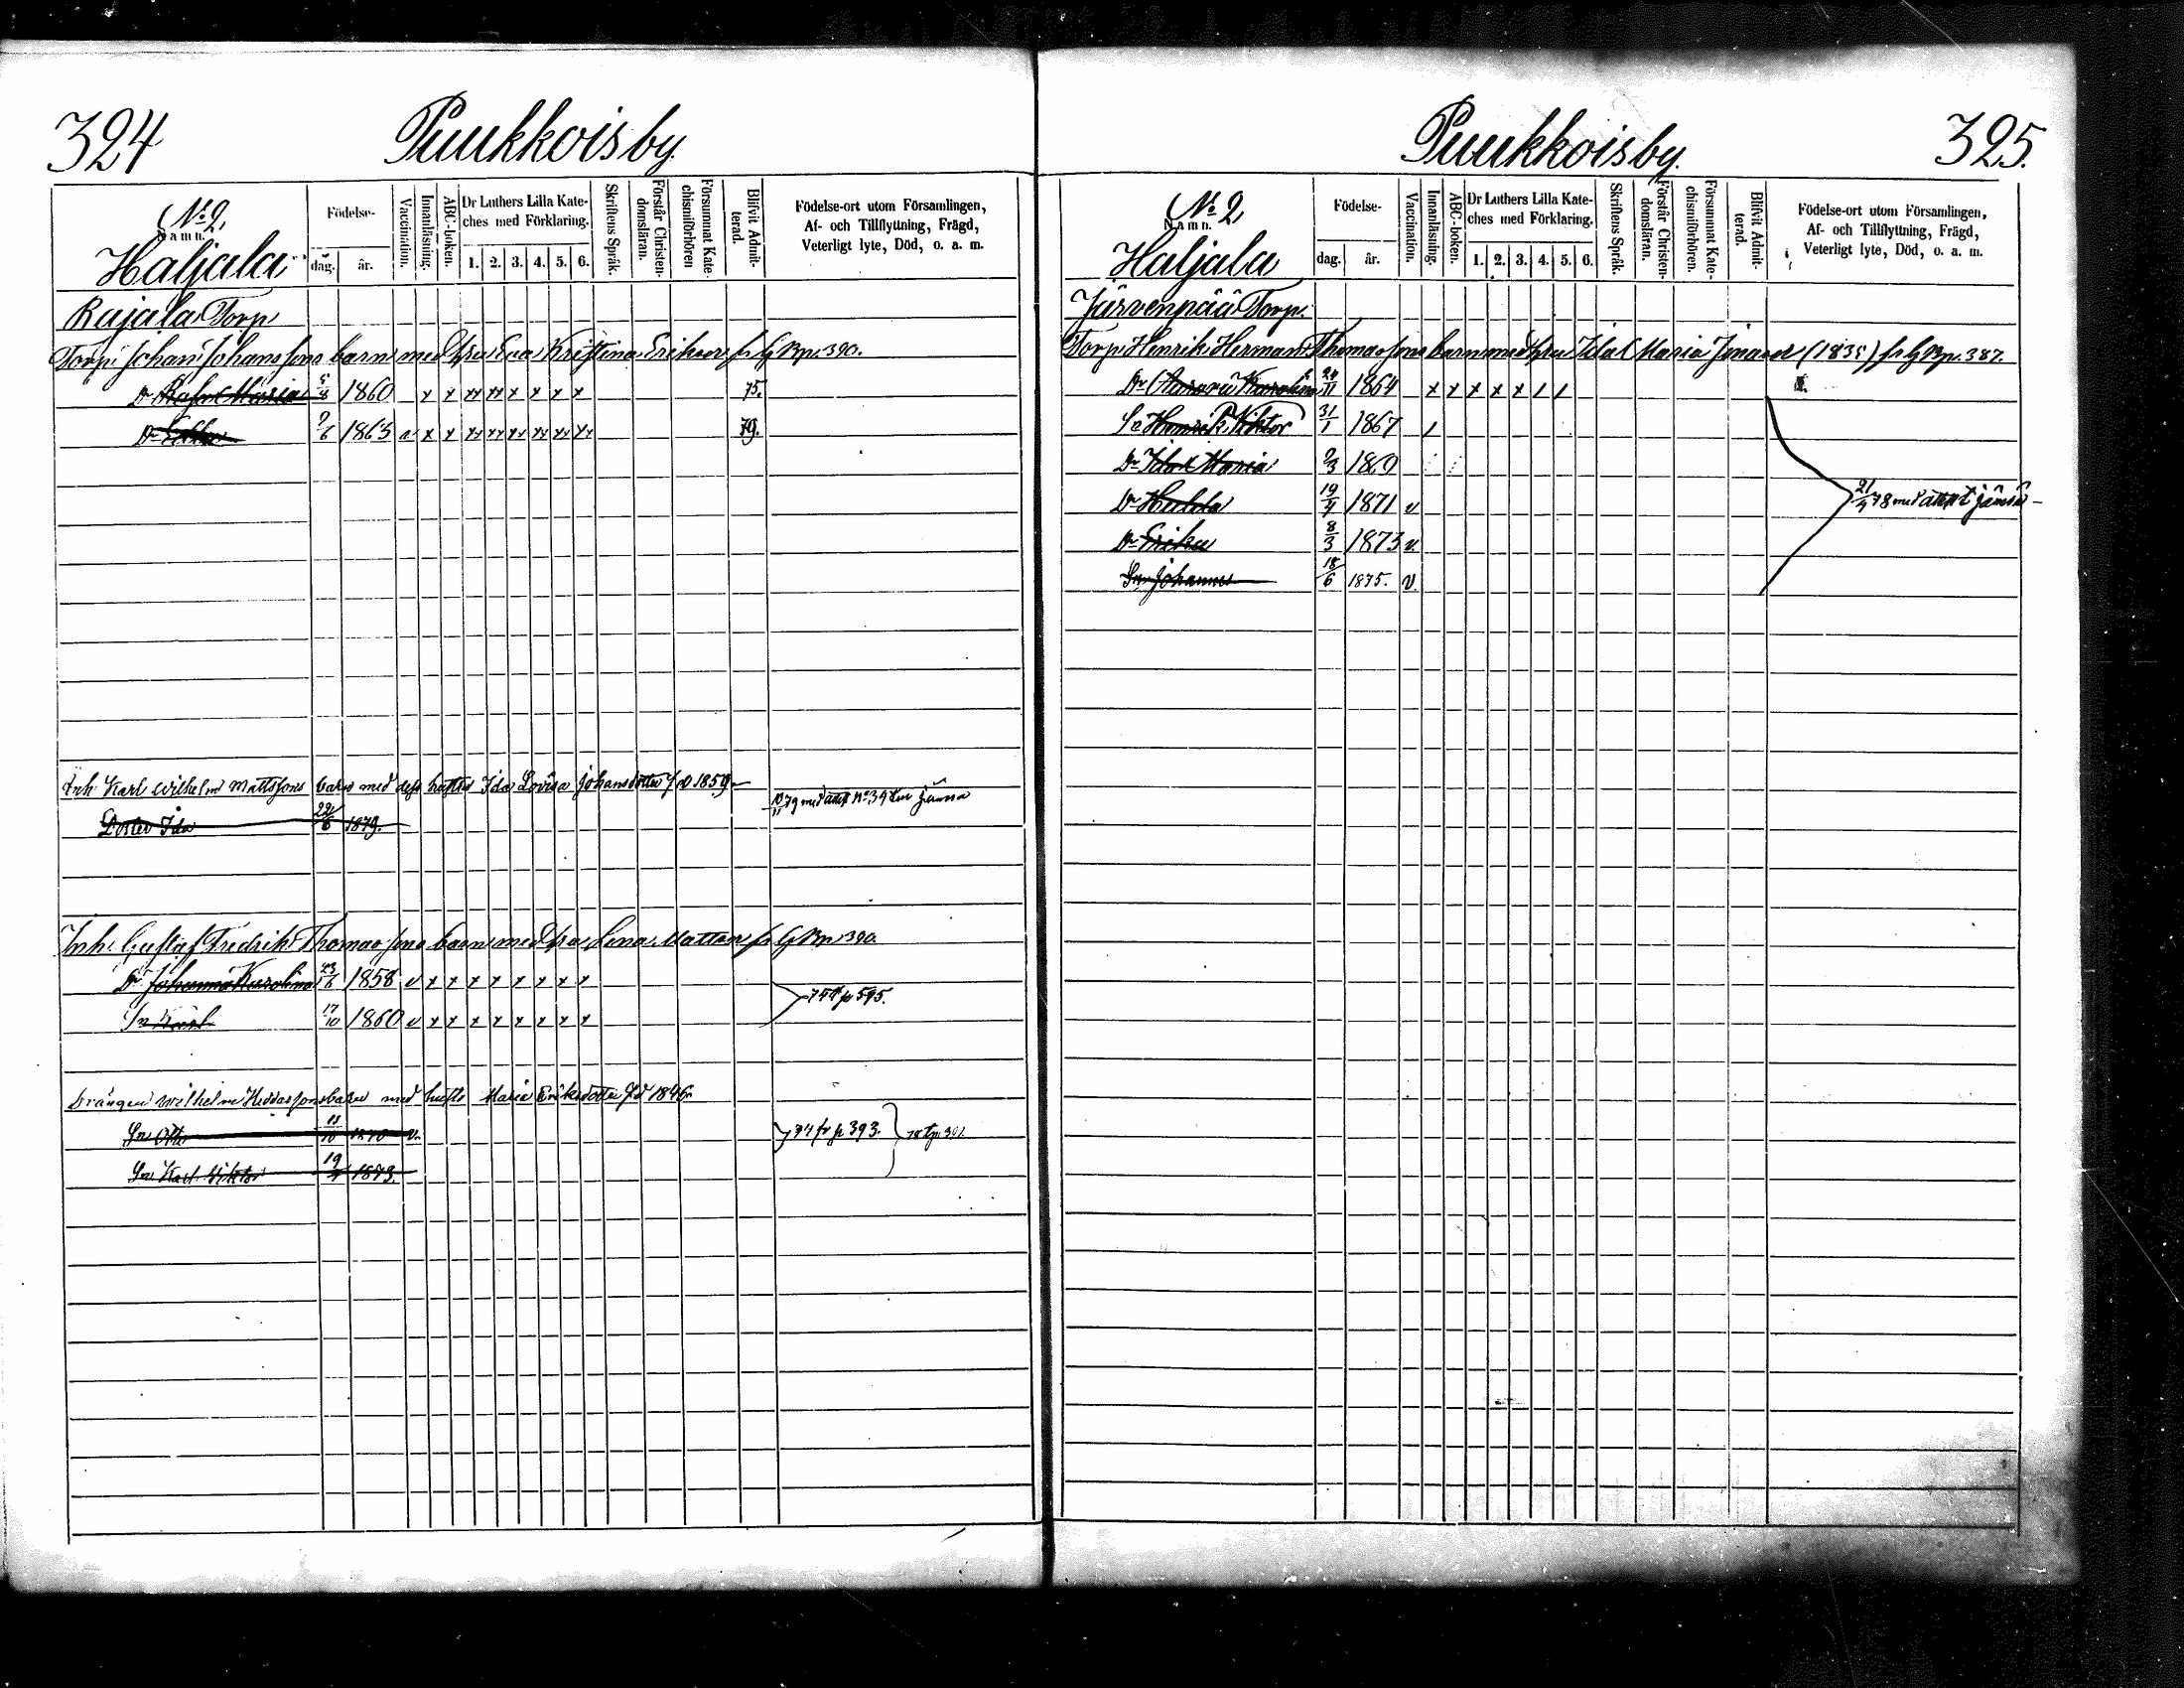 324
Puukkois by.
No 2,
Namn.
Haljala
Födelse-
dag. år.
Vaccination.
Innanläsning.
ABC-boken.
Dr Luthers Lilla Kate-
ches med Förklaring.
1. 2. 3. 4. 5. 6.
Skriftens Språk.
Förstår Christen-
domsläran.
Försummat Kate-
chismiförhören
Blifvit Admit-
terad.
Födelse-ort utom Församlingen,
Af- och Tillflyttning, Frägd,
Veterligt lyte, Död, o. a. m.
Rajala Torp
Torp. Johan Johanssons barn med hu Eva Kristina Eriksdr fr G Bp. 390.
Dr Maria 5/8 1860 x x xx xx x x x x 75.
Dr 9/6 1863 v x x xx xx xx xx xx xx 79.
Inh. Karl Wilhelm Mattssons barn med dess hustru Ida Lovisa Johansdotter fd 1859
Dotter Ida 22/6 1879. 10/11 79 med attest No 34 Jämsä
Inh. Gustaf Fredrik Thomassons barn med hu Lena Mattsdr fr G Bp. 390.
Dr Johanna Karolina 23/6 1858 v x x x x x x x x
74 t p 595.
Sn Karl 17/10 1860 v x x x x x x x x
Drängen Wilhelm barn med hustr Maria Eriksdotter fd 1846
Sn Otto 1870 v.
74 fr p 393.
Sn Karl Viktor 19/4 1873.
325.
Puukkois by.
No 2,
Namn.
Haljala
Födelse-
dag. år.
Vaccination.
Innanläsning.
ABC-boken.
Dr Luthers Lilla Kate-
ches med Förklaring.
1. 2. 3. 4. 5. 6.
Skriftens Språk.
Förstår Christen-
domsläran.
Försummat Kate-
chismiförhören.
Blifvit Admit-
terad.
Födelse-ort utom Församlingen,
Af- och Tillflyttning, Frägd,
Veterligt lyte, Död, o. a. m.
Järvenpää Torp.
Torp. Henrik Herman Thomassons barn med hu Ida Maria (1835) fr G Bp. 387.
Dr Aurora Karolina 24/11 1864 x x x x x / /
Sn Henrik Viktor 31/1 1867 /
Dr Ida Maria 9/3 1869
Dr Hulda 19/4 1871 v
21/4 78 med attest t Jämsä
Dr Erika 8/3 1873 v.
Sn Johannes 18/6 1875. v.